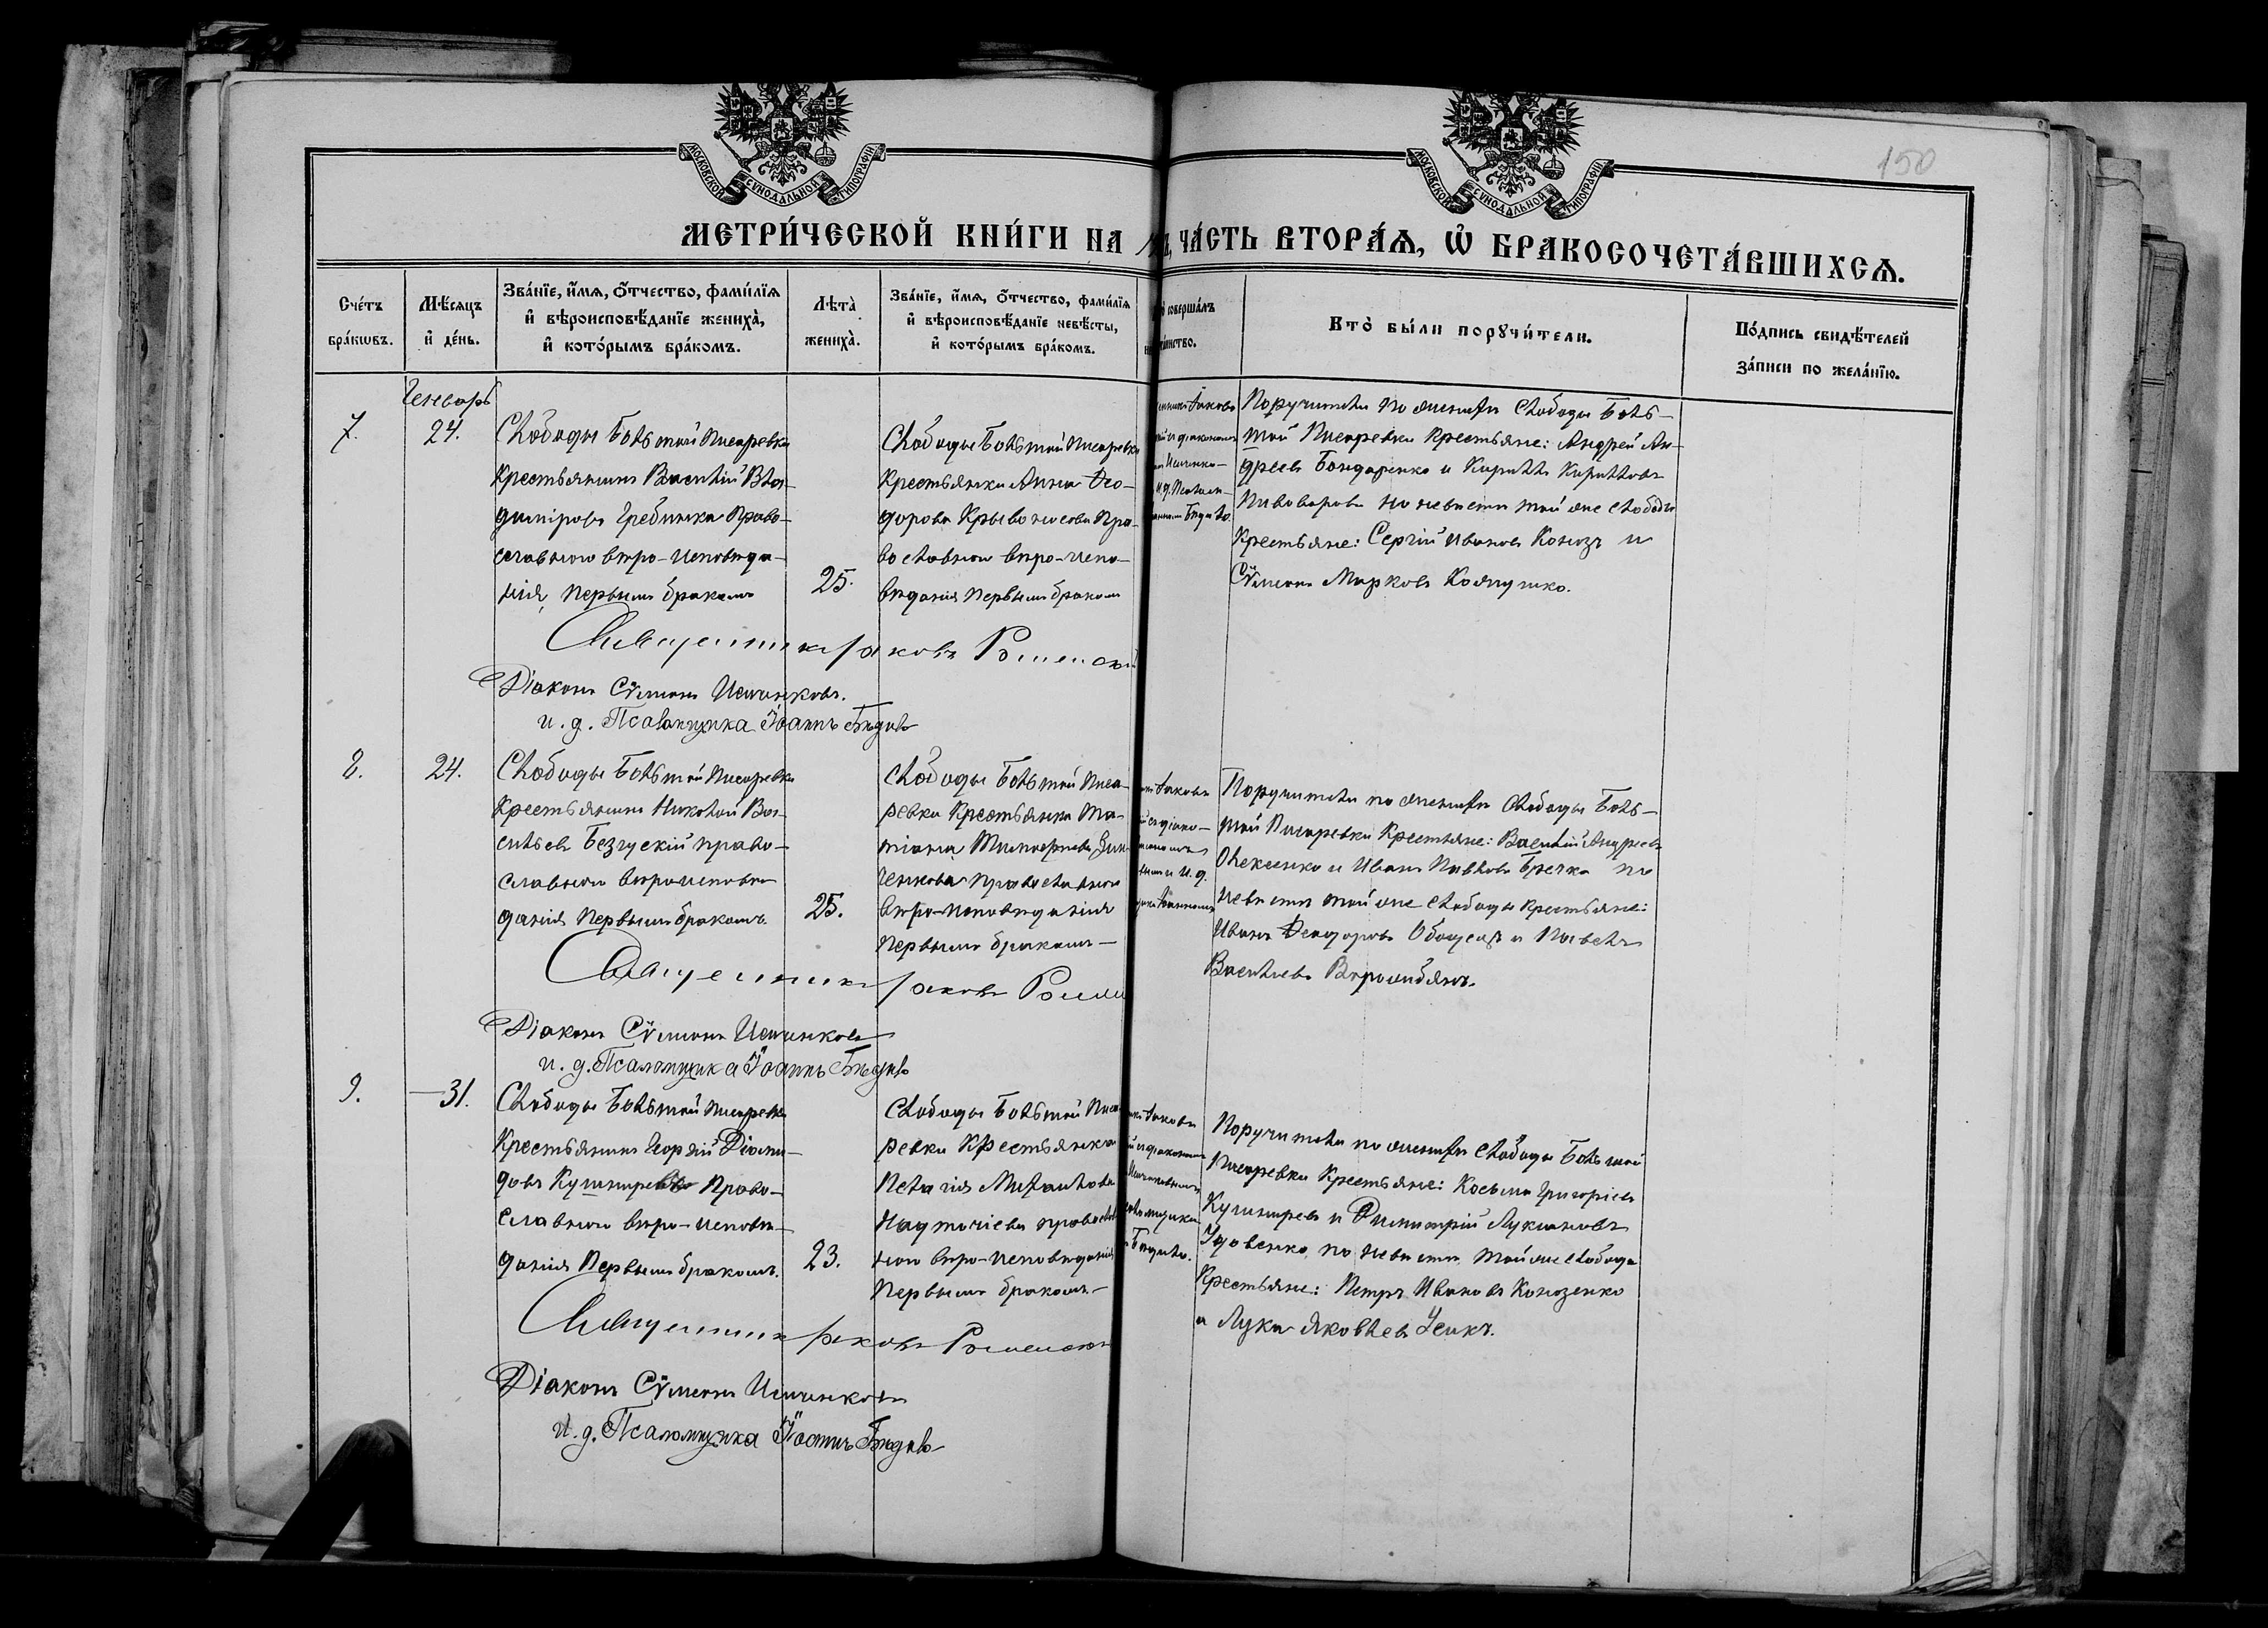 150
МОСКОВСКОЙ СѴНОДАЛЬНОЙ ТИПОГРАФІИ
МОСКОВСКОЙ СѴНОДАЛЬНОЙ ТИПОГРАФІИ
МЕТРИ́ЧЕСКОЙ КНИ́ГИ НА
ЧА́СТЬ ВТОРА́Ѧ, Ѽ БРАКОСОЧЕТА́ВШИХСѦ.
Сче́тъ бра́кѡвъ.
Мѣ́сяцъ и҆ де́нь.
Зва́нїе, и҆́мѧ, ѻ҆́тчество, фами́лїѧ
и҆ вѣроисповѣ́данїе жениха̀,
и҆ кото́рымъ бра́комъ.
Лѣта̀ жениха̀.
Зва́нїе, и҆́мѧ, ѻ҆́тчество, фами́лїѧ
и҆ вѣроисповѣ́данїе невѣ́сты,
и҆ кото́рымъ бра́комъ.
соверша́лъ
Кто̀ бы́ли порꙋчи́тели.
По́дпись свидѣ́телей
за́писи по жела́нїю.
Генварь
7.
24.
Слободы Большой Писаревки
Крестьянинъ Василій Вла-
диміровъ Гребинка Право-
славнаго вѣро-исповѣда-
нія, первымъ бракомъ
25.
Слободы Большой Писаревки
Крестьянка Анна Ѳео-
дорова Кривоносова Пра-
вославнаго вѣро-испо-
вѣданія первымъ бракомъ
Поручители по женихѣ Слободы Боль-
шой Писаревки Крестьяне: Андрей Ан-
дреевъ Бондаренко и Кириллъ Кирилловъ
Пивоваровъ по невѣстѣ той же слободы
Крестьяне: Сергій Ивановъ Конозъ и
Сѵмеонъ Марковъ
Священникъ Іаковъ
Діаконъ Сѵмеонъ Исиченковъ.
и. д. Псаломщика Іоаннъ Бѣдило
8.
24.
Слободы Большой Писаревки
Крестьянинъ Николай Ва-
сильевъ Безускій право-
славнаго вѣроисповѣ-
данія первымъ бракомъ.
25.
Слободы Большой Писа-
ревки Крестьянка Та-
тіана Тимоѳеева Зин-
ченкова православнаго
вѣро-исповѣданія
первымъ бракомъ-
Поручители по женихѣ Слободы Боль-
шой Писаревки Крестьяне: Василій Андреевъ
Олексенко и Иванъ Павловъ Бречка по
невѣстѣ той же слободы крестьяне:
Иванъ Ѳеодоровъ и Павелъ
Васильевъ
Священникъ Іаковъ
Діаконъ Сѵмеонъ Исиченковъ
и. д. Псаломщика Іоаннъ Бѣдило
9.
31.
Слободы Большой Писаревки
Крестьянинъ Георгій Діоми-
довъ Кушниревъ Право-
славнаго вѣро-исповѣ-
данія Первымъ бракомъ.
23.
Слободы Большой Писа-
ревки Крестьянка
Пелагія Михаилова
Надточіева православ-
наго вѣро-исповѣданія
Первымъ бракомъ-
Поручители по женихѣ слободы Большой
Писаревки Крестьяне: Косьма Григоріевъ
Кушниревъ и Димитрій Лукіановъ
Удовенко, по невѣстѣ той же слободы
Крестьяне: Петръ Ивановъ Конозенко
и Лука Яковлевъ Усикъ.
Священникъ Іаковъ
Діаконъ Сѵмеонъ Исиченковъ
и. д. Псаломщика Іоаннъ Бѣдило